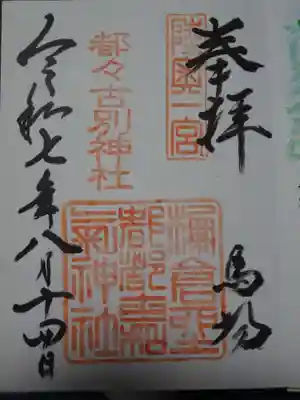 奉拝
陸奥一宮
馬場
都々古別神社
棚倉聖
都都古
氣神社
令和七年八月十四日